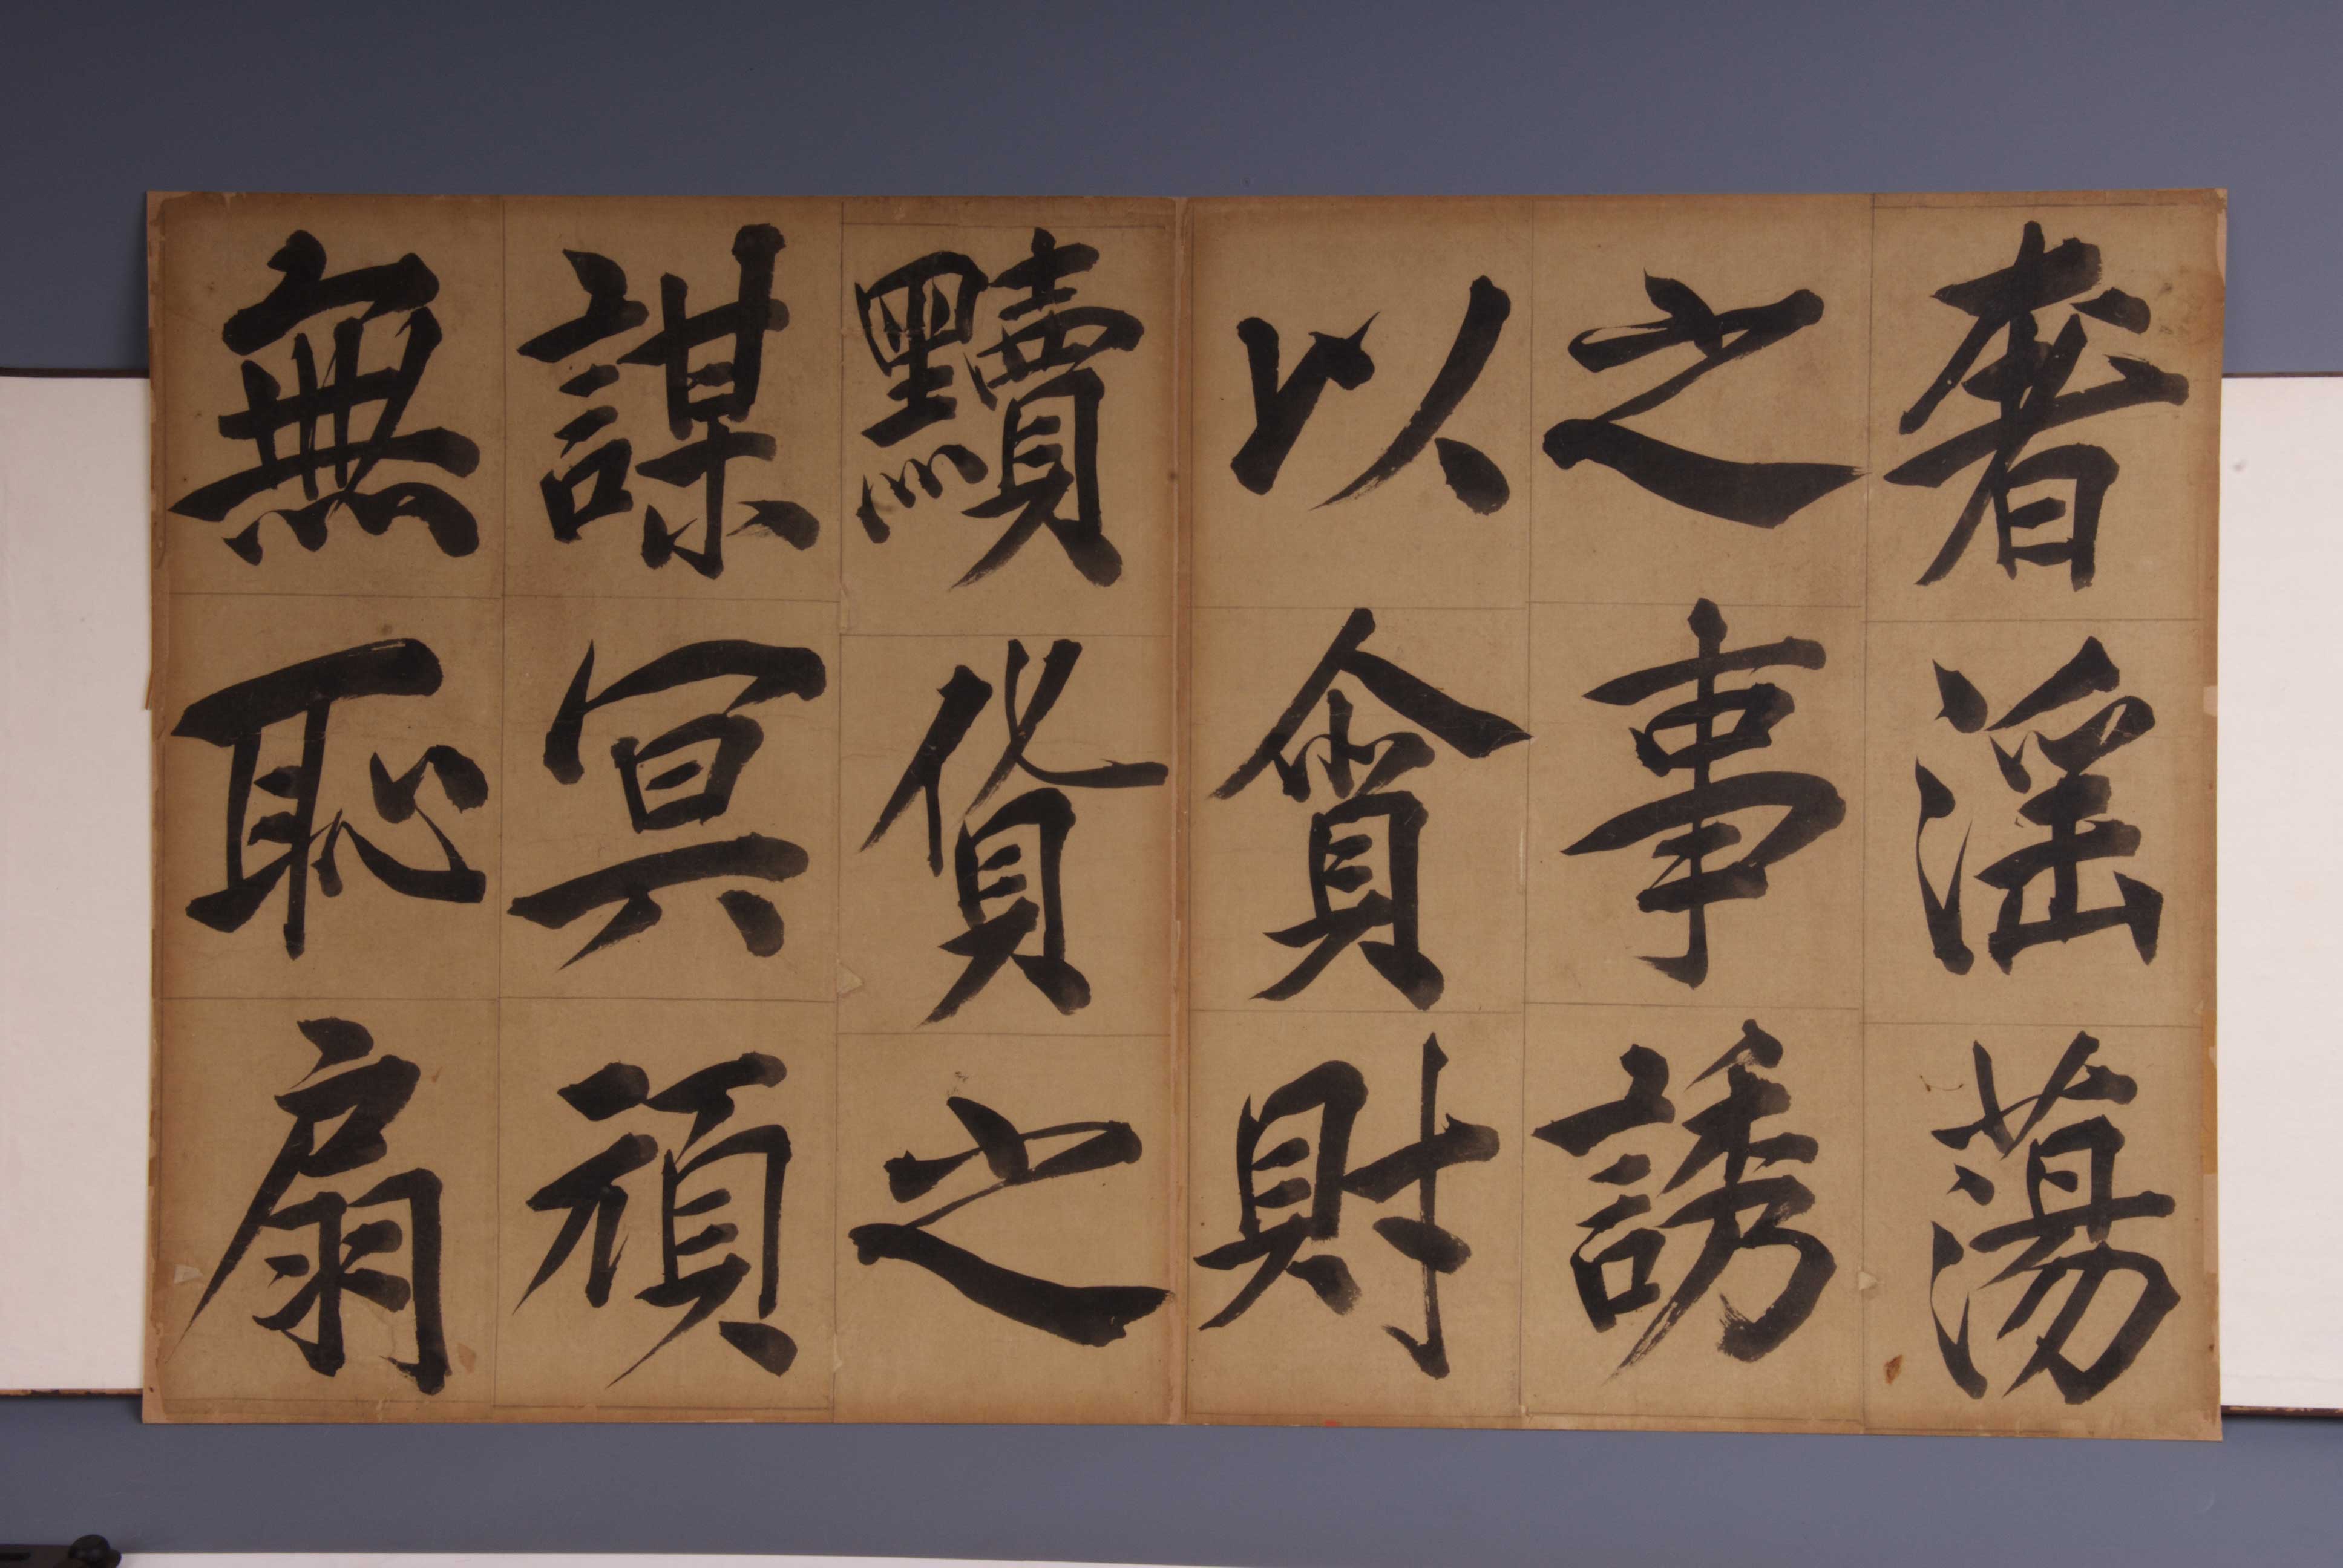 奢滛蕩
之事誘
以貪財
黷貨之
謀冥頑
無恥扇